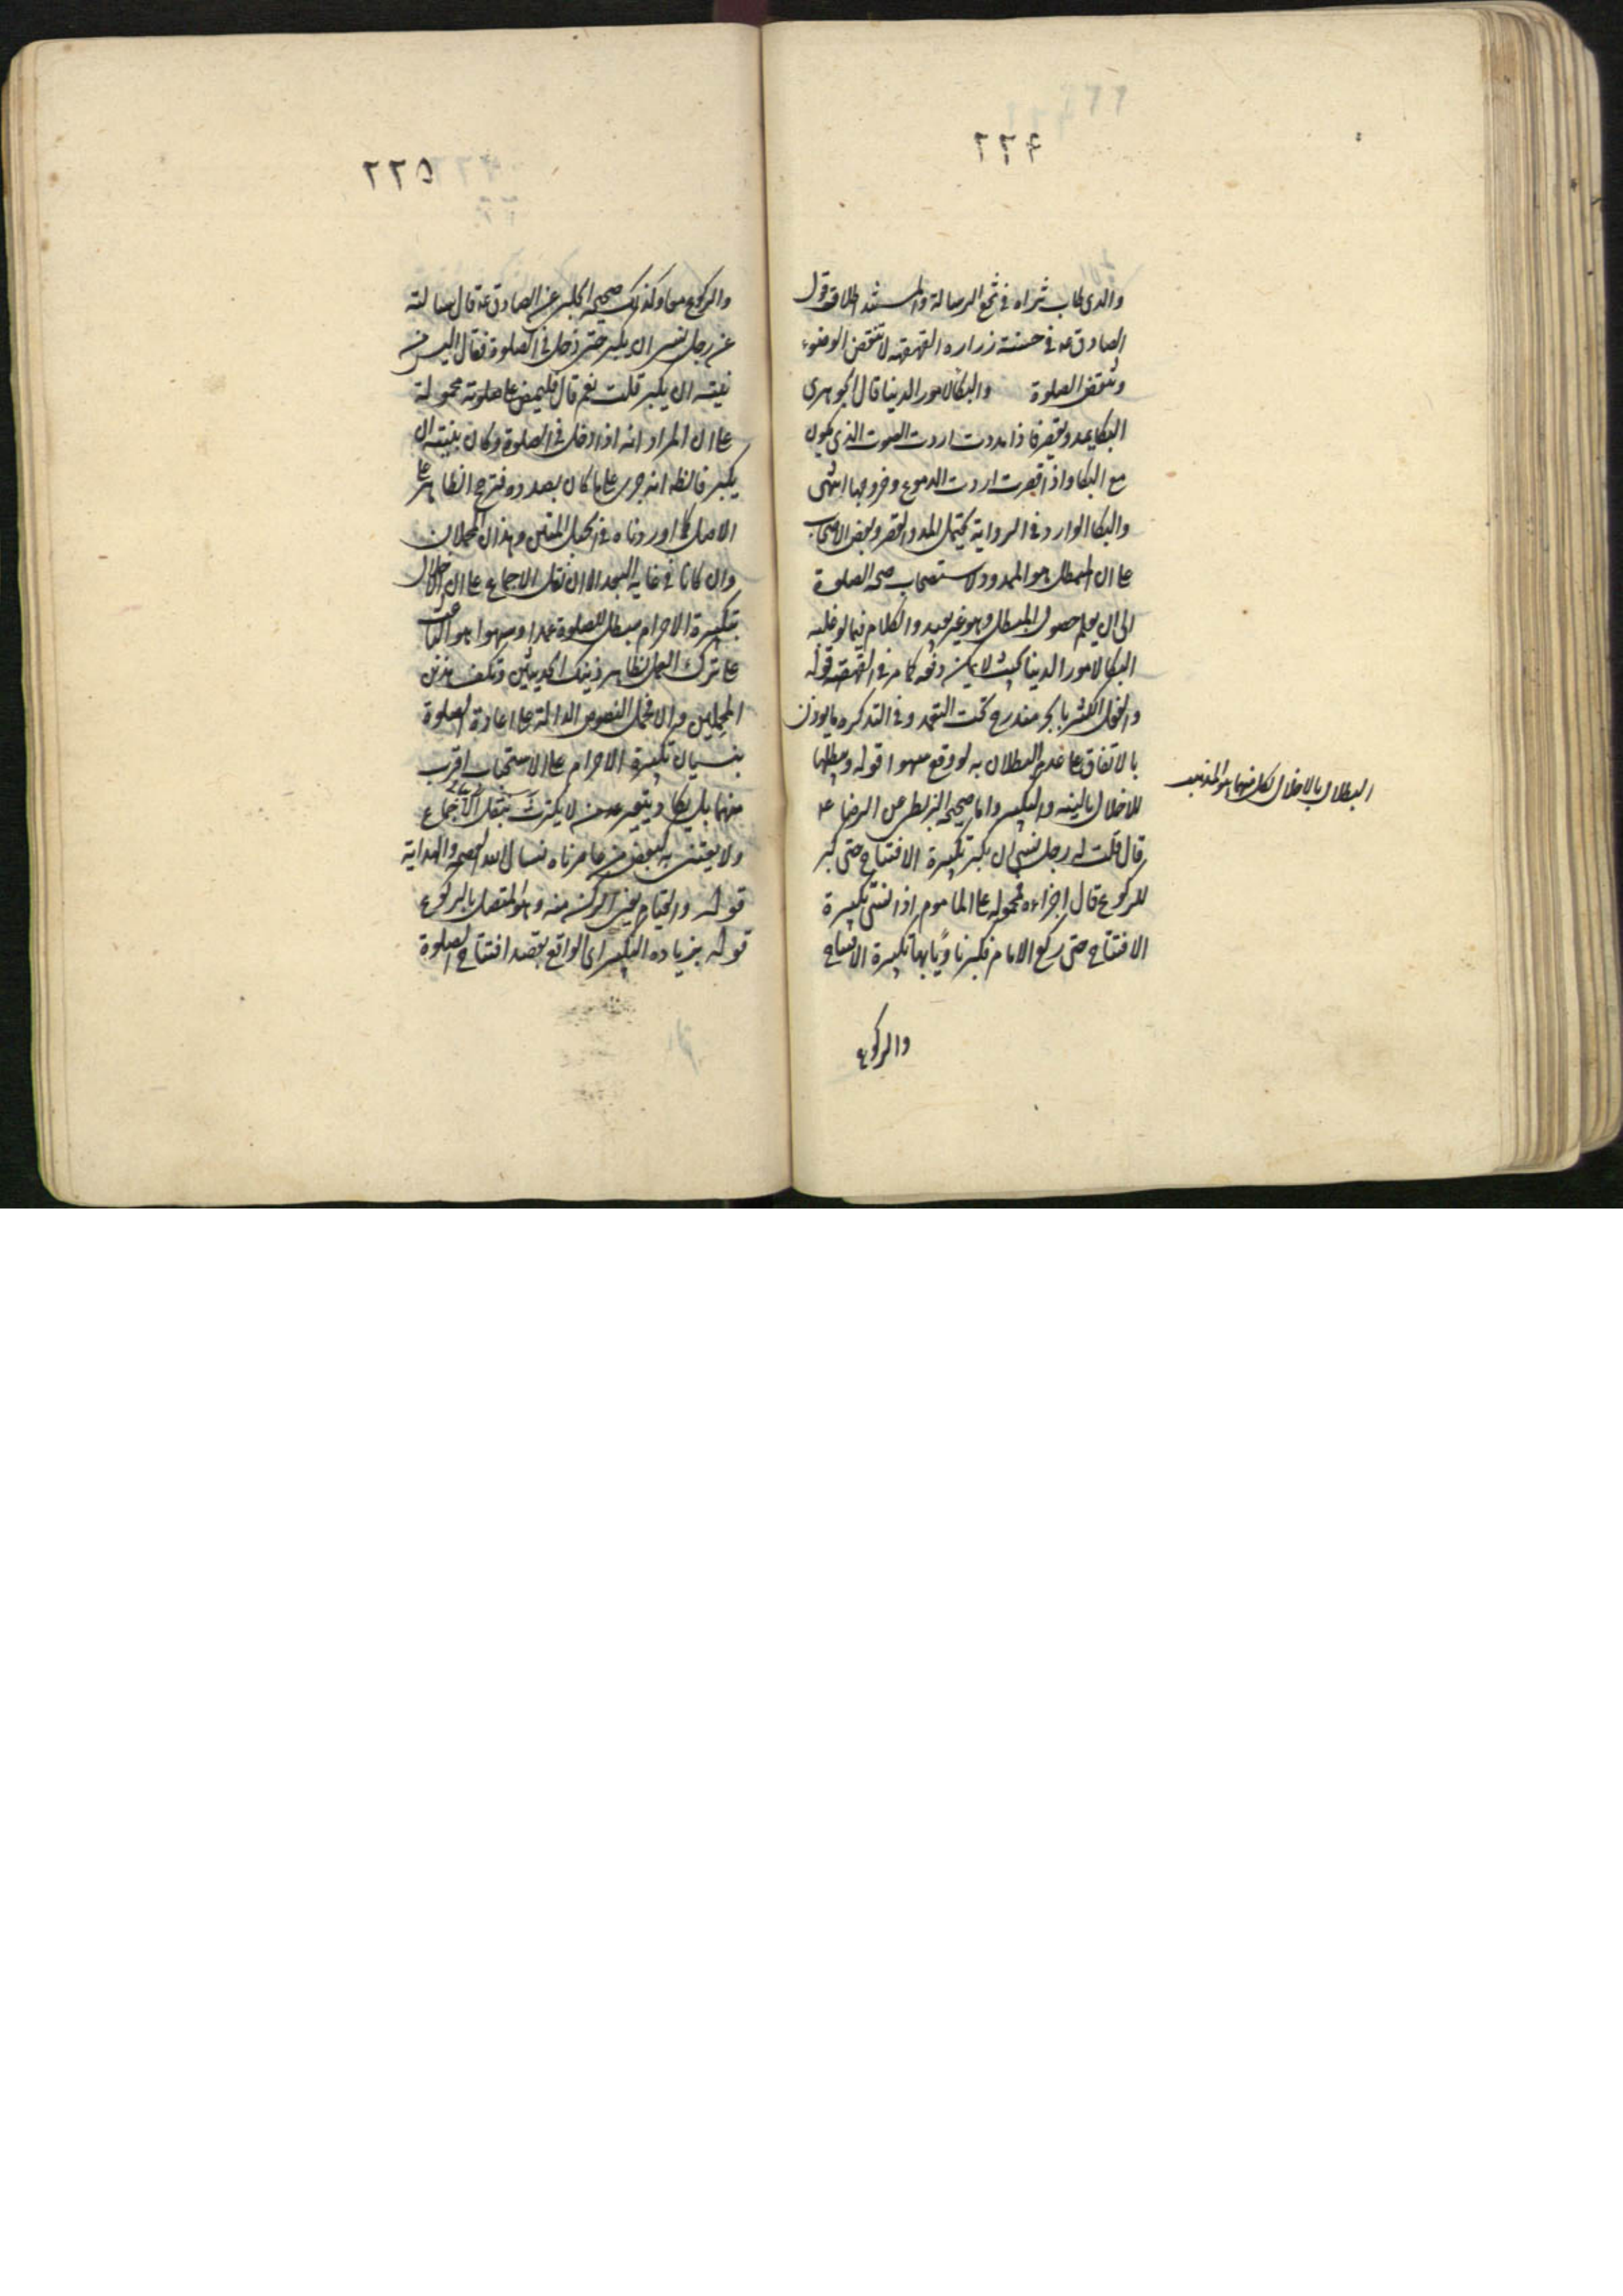 ٢٢٤
والدي طاب ثراه في شرح الرسالة والمستند اطلاق قول
الصادق ع في حسنة زراره القهقهه لا تنقض الوضوء
وتنقض الصلوة والبكا لامور الدنيا قال الجوهري
البكا يمد ويقصر فاذا مددت اردت الصوت الذي يكون
مع البكا واذا قصرت اردت الدموع وخروجها انتهى
والبكا الوارد في الرواية يحتمل المد والقصر وبعض الاصحاب
على ان المبطل هو الممدود لاستصحاب صحه الصلوة
الى ان يعلم حصول المبطل وهو غير بعيد والكلام فيما لو غلبه
البكا لامور الدنيا بحيث لا يمكنه دفعه كما مر في القهقهه قوله
والفعل الكثير بالجر مندرج تحت التعمد وفي التذكره ما يؤذن
بالاتفاق على عدم البطلان به لو وقع سهوا قوله ويبطلها
للاخلال بالنيه والتكبير واما صحيحه البزنطي عن الرضا ع
قال قلت له رجل نسي ان يكبر تكبيرة الافتتاح حتى كبر
للركوع قال اجزاءه محموله على الماموم اذا نسي تكبيرة
الافتتاح حتى ركع الامام فكبر ناويا بها تكبيرة الافتتاح
والركوع
البطلان بالاخلال لكل منهما هو المذهب
٢٢٥
والركوع معا وكذلك صحيحه الحلبي عن الصادق ع قال سالته
عن رجل نسي ان يكبر حتى دخل في الصلوة فقال اليس من
نيته ان يكبر قلت نعم قال فليمض على صلوته محمولة
على ان المراد انه اذا دخل في الصلوة وكان بنيته ان
يكبر فالظ انه جرى على ما كان بصدده فترجح الظاهر على
الاصل كما اوردناه في الحبل المتين وهذان المحملان
وان كانا في غايه البعد الا ان نقل الاجماع على ان الاخلال
بتكبيرة الاحرام مبطل للصلوة عمدا وسهوا هو الباعث
على ترك العمل بظاهر ذينك الحديثين وتكلف هذين
المحملين والا فحمل النصوص الدالة على اعادة الصلوة
بنسيان تكبيرة الاحرام على الاستحباب اقرب
منهما بل يكاد يتعين عند من لا يكترث بنقل الاجماع
ولا يعتني به كبعض من عاصرناه نسال الله العصمه والهداية
قوله والقيام يعني الركن منه وهو المتصل بالركوع
قوله بزياده التكبير اى الواقع بقصد افتتاح الصلوة